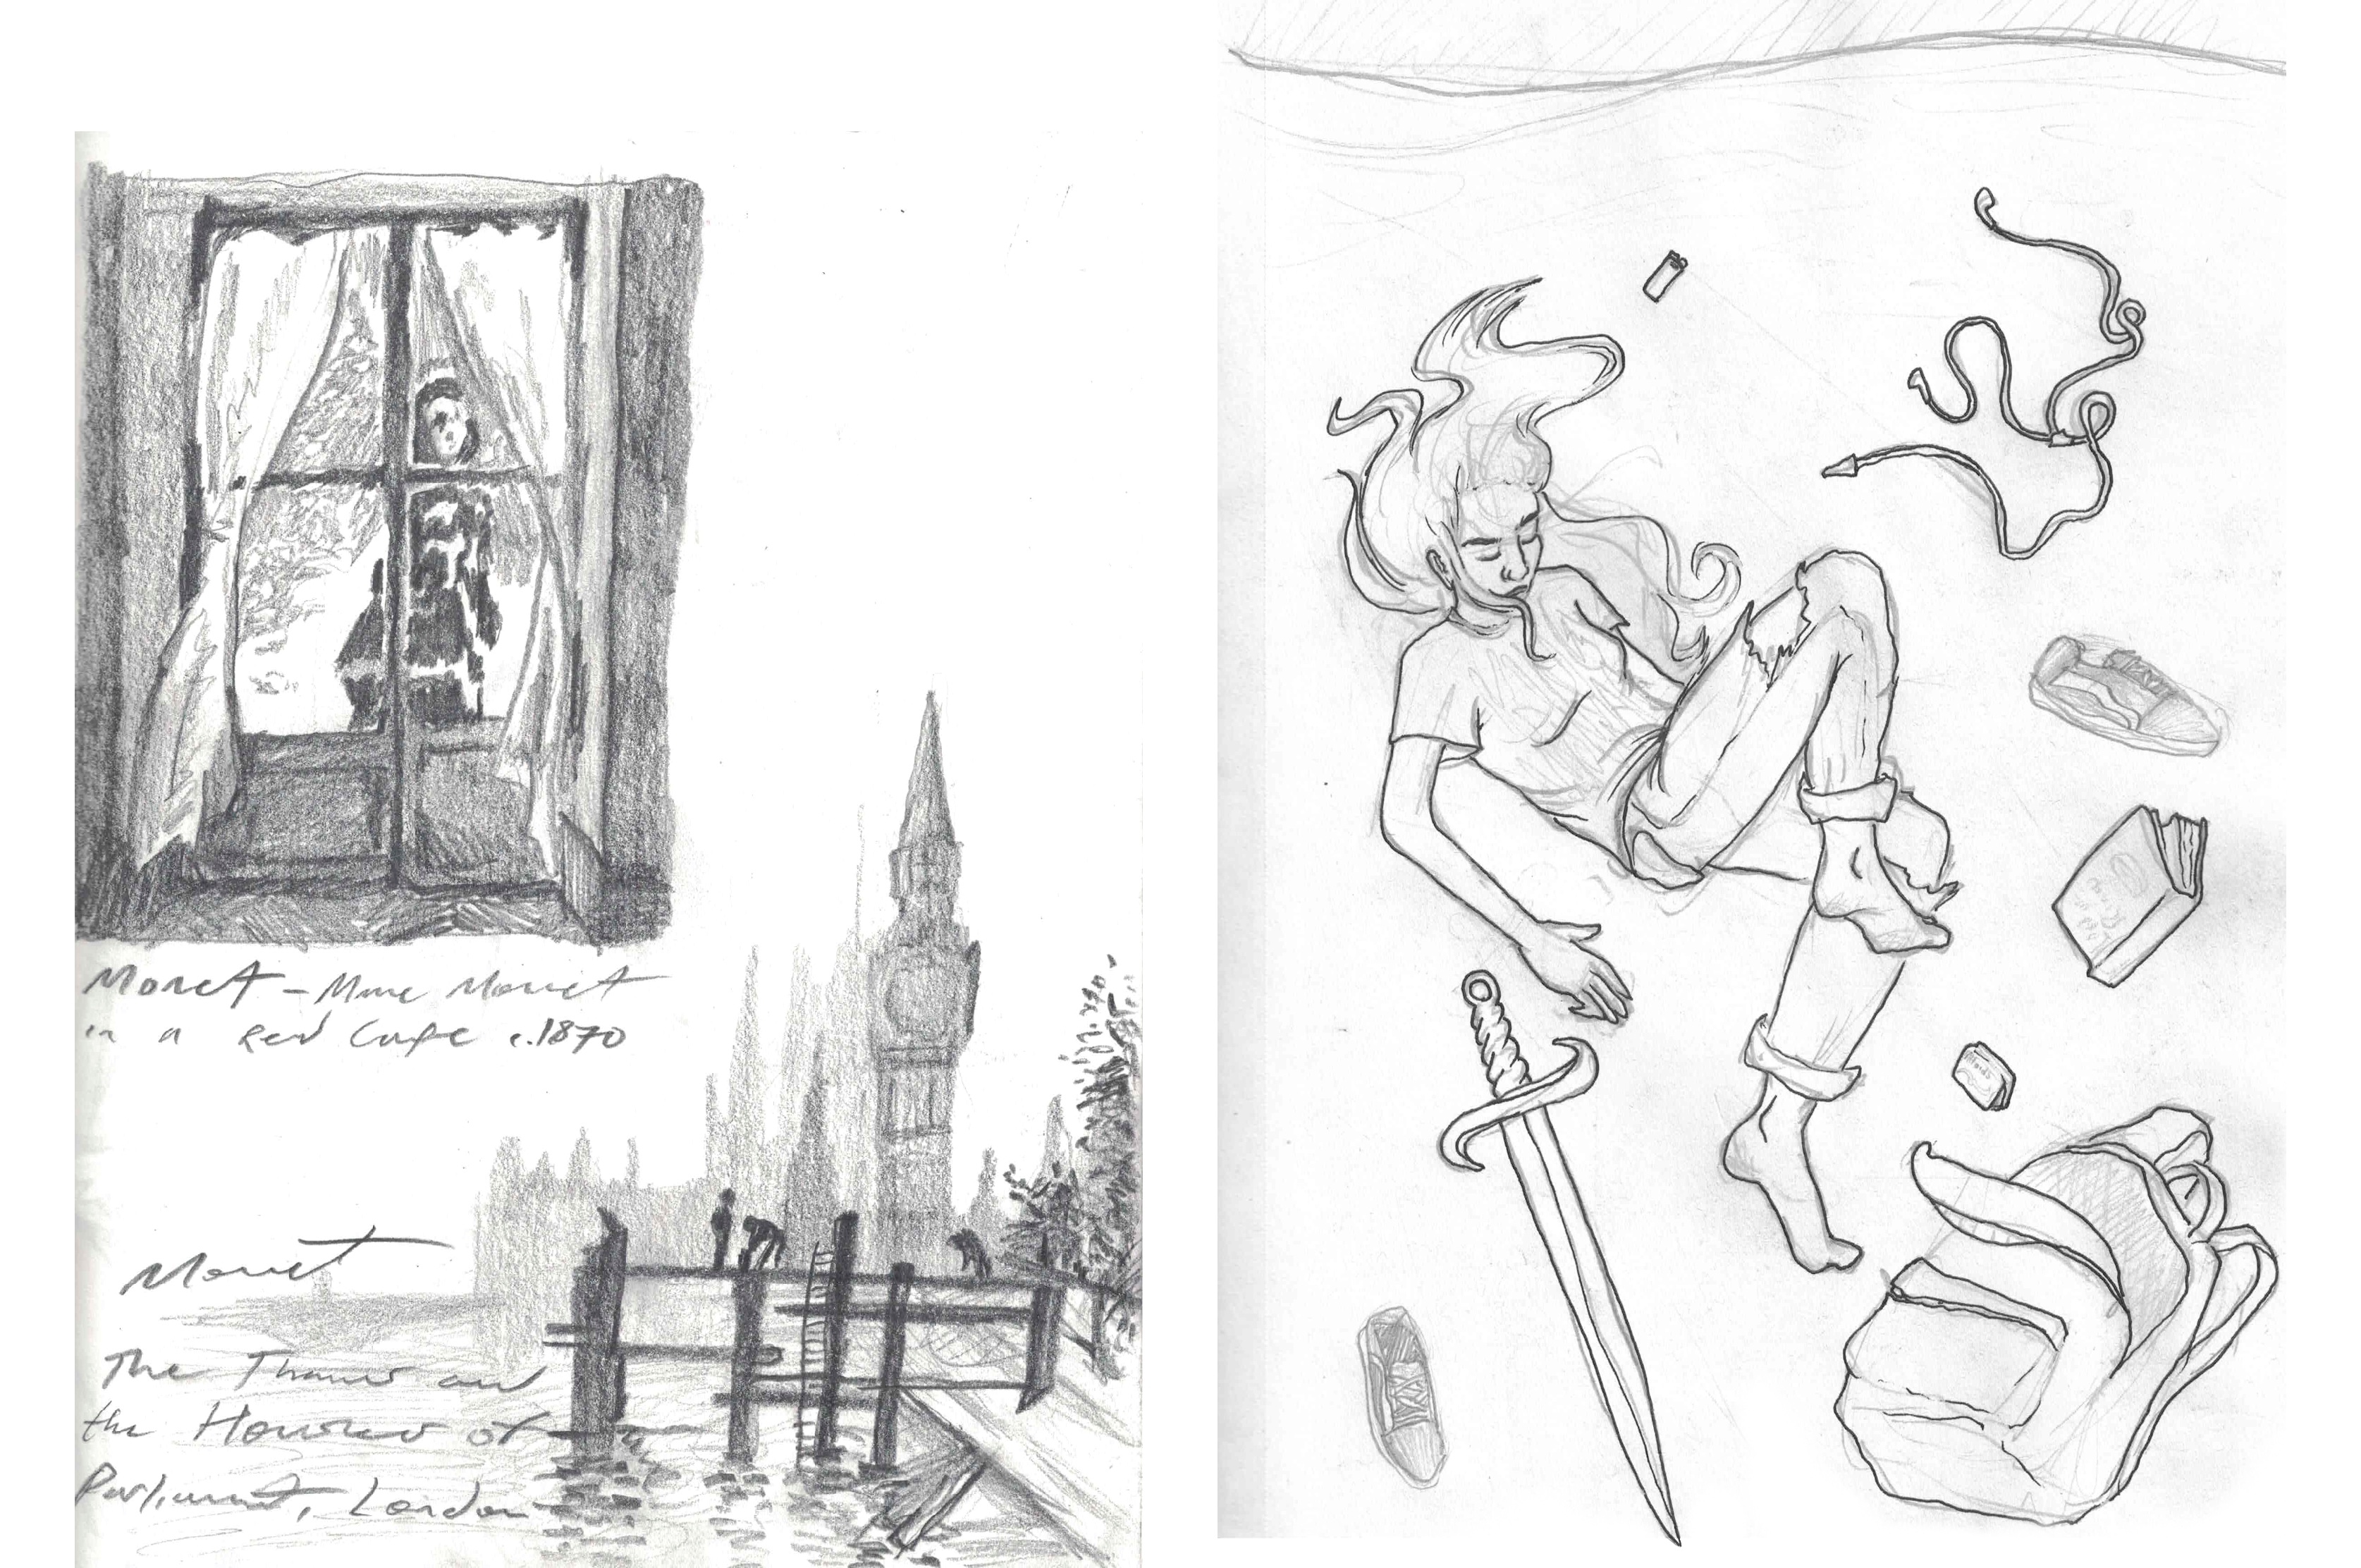 Monet - Mme Monet
in a Red Cape c.1870
Monet
The Thames and
the Houses of
Parliament, London